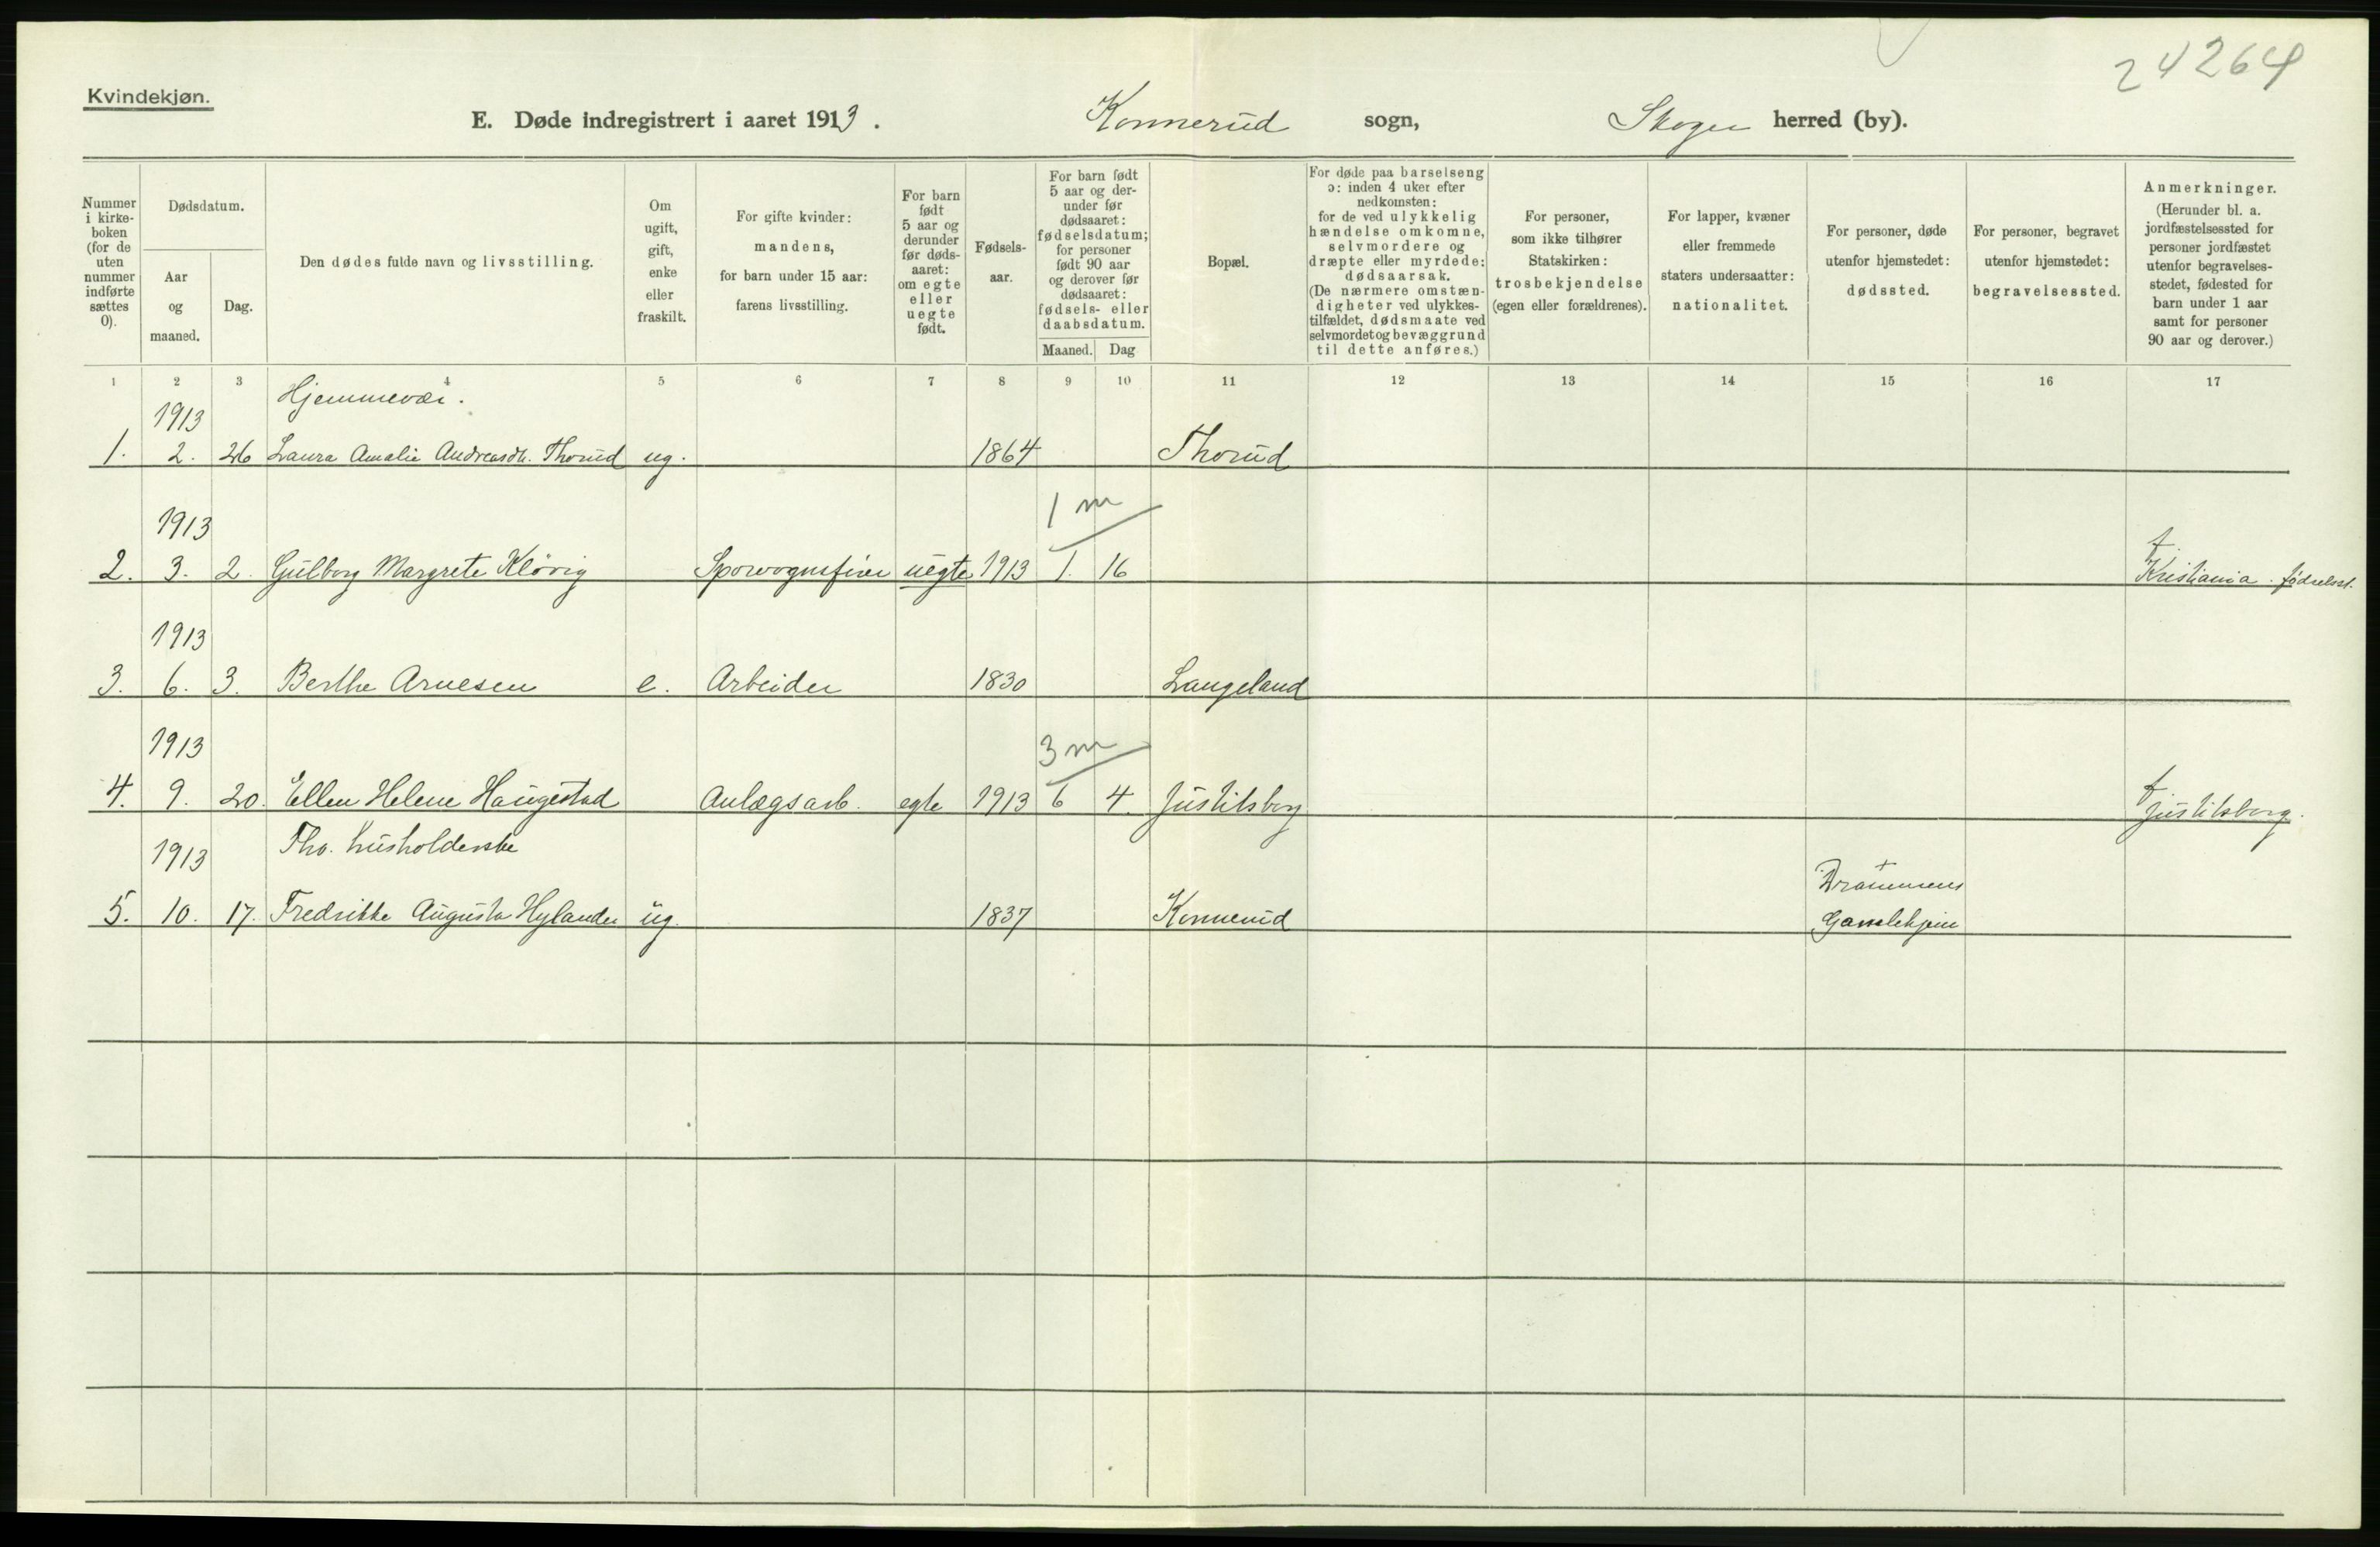 24264
Kvindekjøn.
E. Døde indregistrert i aaret 1913. Konnerud sogn, Skoger herred (by).
Nummer i kirke-boken (for de uten nummer indførte sættes 0).
Dødsdatum.
Aar og maaned.
Dag.
Den dødes fulde navn og livsstilling.
Om ugift, gift, enke eller fraskilt.
For gifte kvinder: mandens, for barn under 15 aar: farens livsstilling.
For barn født 5 aar og derunder før døds-aaret: om egte eller uegte født.
Fødsels-aar.
For barn født 5 aar og der-under før dødsaaret: fødselsdatum; for personer født 90 aar og derover før dødsaaret: fødsels- eller daabsdatum.
Maaned. Dag
Bopæl.
For døde paa barselseng ɔ: inden 4 uker efter nedkomsten: for de ved ulykkelig hændelse omkomne, selvmordere og dræpte eller myrdede: dødsaarsak. (De nærmere omstæn-digheter ved ulykkes-tilfældet, dødsmaate ved selvmordet og bevæggrund til dette anføres.)
For personer, som ikke tilhører Statskirken: trosbekjendelse (egen eller forældrenes).
For lapper, kvæner eller fremmede staters undersaatter: nationalitet.
For personer, døde utenfor hjemstedet: dødssted.
For personer, begravet utenfor hjemstedet: begravelsessted.
Anmerkninger. (Herunder bl. a. jordfæstelsessted for personer jordfæstet utenfor begravelses-stedet, fødested for barn under 1 aar samt for personer 90 aar og derover.)
1 2 3 4 5 6 7 8 9 10 11 12 13 14 15 16 17
1913 Hjemmevær.
1. 2. 26 Laura Amalie Andreasdtr. Thorud ug. 1864 Thorud
1913 1 m
2. 3. 2. Gulborg Margrete Kløvig Sporvognsfører uegte 1913 1. 16 f. Kristiania. fødselsst.
1913
3. 6. 3. Berthe Arnesen e. Arbeider 1830 Langeland
1913 3 m
4. 9. 20. Ellen Helene Haugestad Anlægsarb. egte 1913 6 4. Justitsberg f. Justitsberg.
1913 Fhv. husholderske Drammens
5. 10. 17. Fredrikke Augusta Hylander ug. 1837 Konnerud Gamlehjem